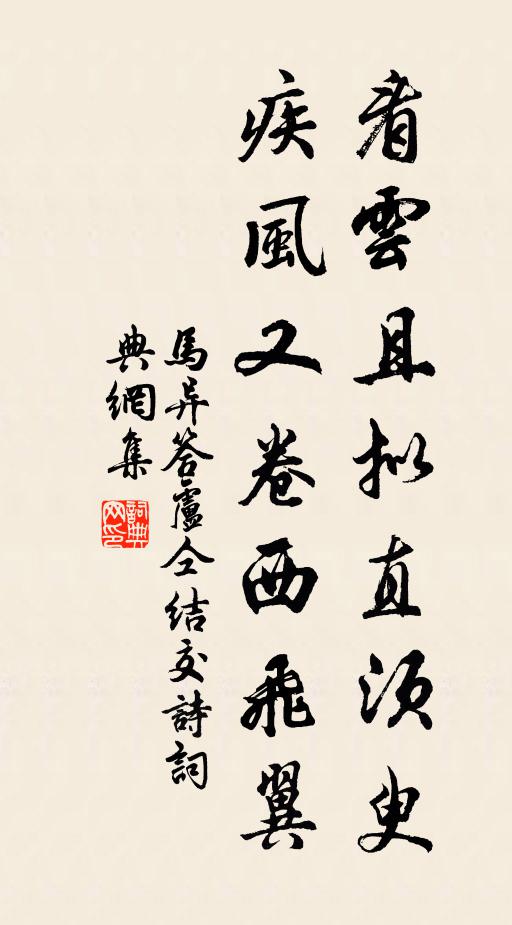 看雲且擬直須臾
疾風又卷西飛翼
馬异答盧仝結交詩詞
典網集
詞典網印